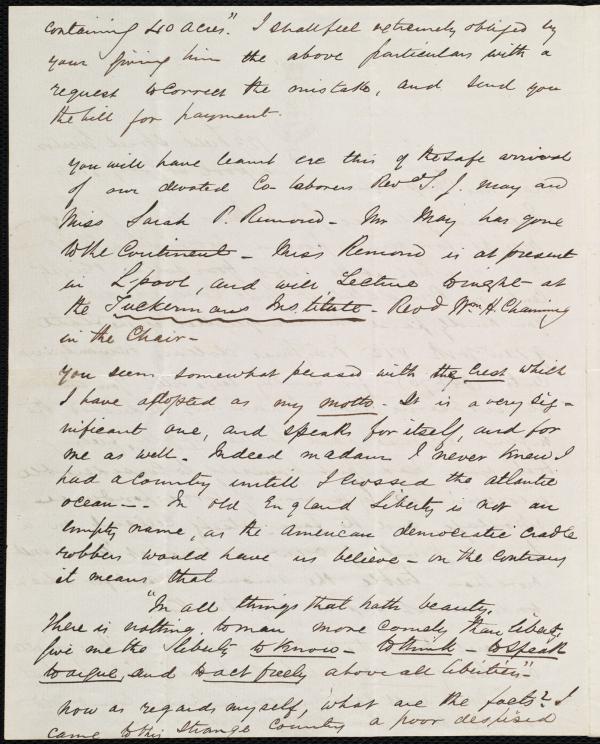 containing 40 acres." I shall feel extremely obliged by
your giving him the above particulars with a
request to correct the mistake, and send you
the bill for payment.
You will have learnt ere this of the safe arrival
of our devoted Co-laborers Revd S. J. May and
Miss Sarah P. Remond - Mr May has gone
to the Continent - Miss Remond is at present
in L-pool, and will Lecture tonight at
the Tuckermans Institute - Revd Wm H. Channing
in the Chair -
You seem somewhat pleased with the Crest which
I have adopted as my motto. It is a very sig-
nificant one, and speaks for itself, and for
me as well. Indeed madam I never knew I
had a Country untill I crossed the atlantic
ocean - - In old England Liberty is not an
empty name, as the American democratic cradle
robbers would have us believe - on the contrary
it means that
"In all things that hath beauty,
There is nothing to man more comely than liberty,
Give me the liberty to know - to think - to speak
to argue, and to act freely above all liberties" -
Now as regards myself, what are the facts? I
came to this strange country a poor despised